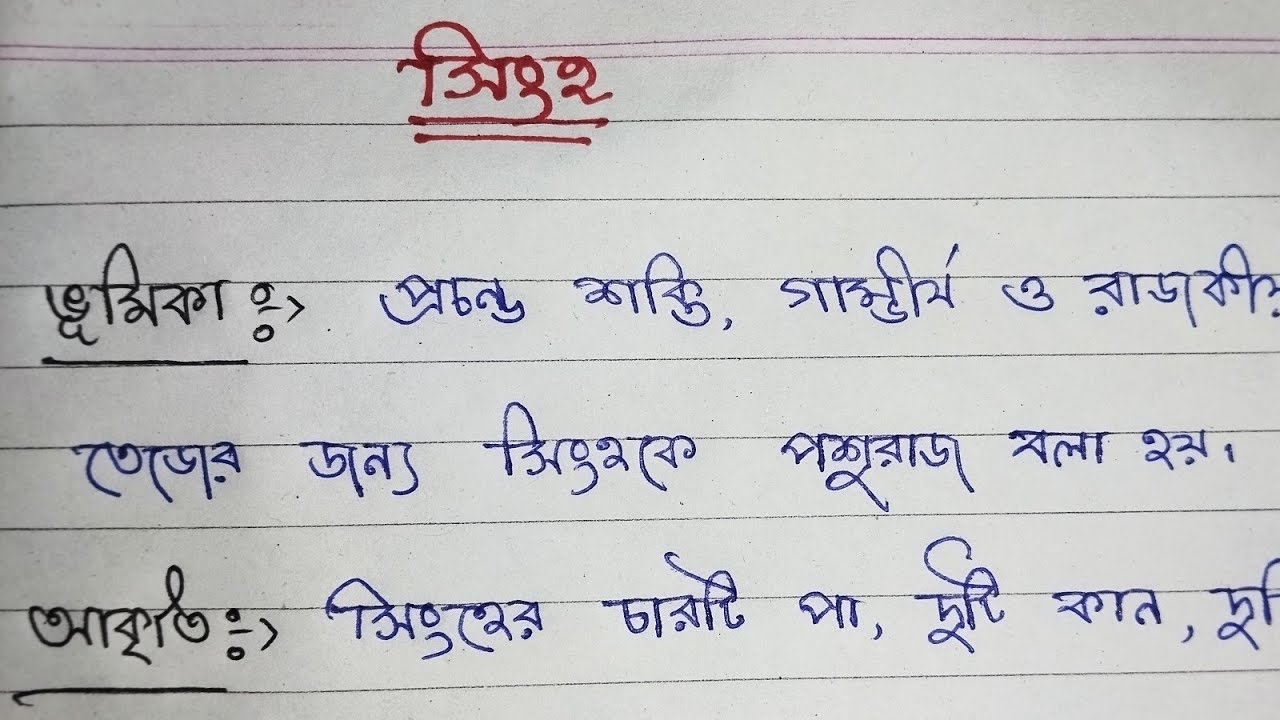 সিংহ
ভূমিকা :> প্রচন্ড শক্তি, গাম্ভীর্য ও রাজকীয়
তেজের জন্য সিংহকে পশুরাজ বলা হয়।
আকৃতি :> সিংহের চারটি পা, দুটি কান, দুটি